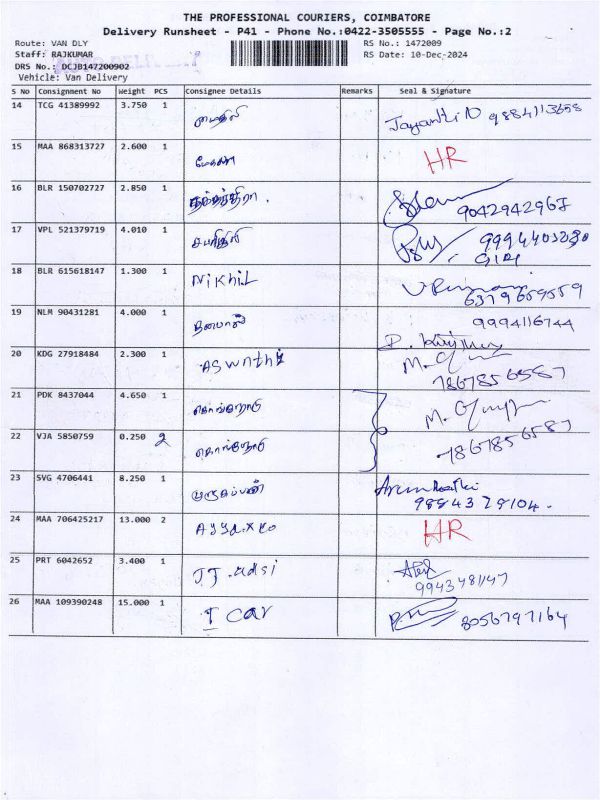 THE PROFESSIONAL COURIERS, COIMBATORE
Delivery Runsheet - P41 - Phone No.:0422-3505555 - Page No.:2
Route: VAN DLY RS No.: 1472009
Staff: RAJKUMAR RS Date: 10-Dec-2024
DRS No.: DCJB147200902
Vehicle: Van Delivery
S No Consignment No Weight PCS Consignee Details Remarks Seal & Signature
14 TCG 41389992 3.750 1 மைதிலி Jayanthi N 9884113658
15 MAA 868313727 2.600 1 மேகலா HR
16 BLR 150702727 2.850 1 9042942967
17 VPL 521379719 4.010 1 9994403230
18 BLR 615618147 1.300 1 Nikhil 6379659559
19 NLM 90431281 4.000 1 9994116744
20 KDG 27918484 2.300 1 Aswathi 7867856587
21 PDK 8437044 4.650 1
22 VJA 5850759 0.250 2 7867856587
23 SVG 4706441 8.250 1 முருகப்பன் 9884379104.
24 MAA 706425217 13.000 2 HR
25 PRT 6042652 3.400 1 9943481147
26 MAA 109390248 15.000 1 T car 8056797164